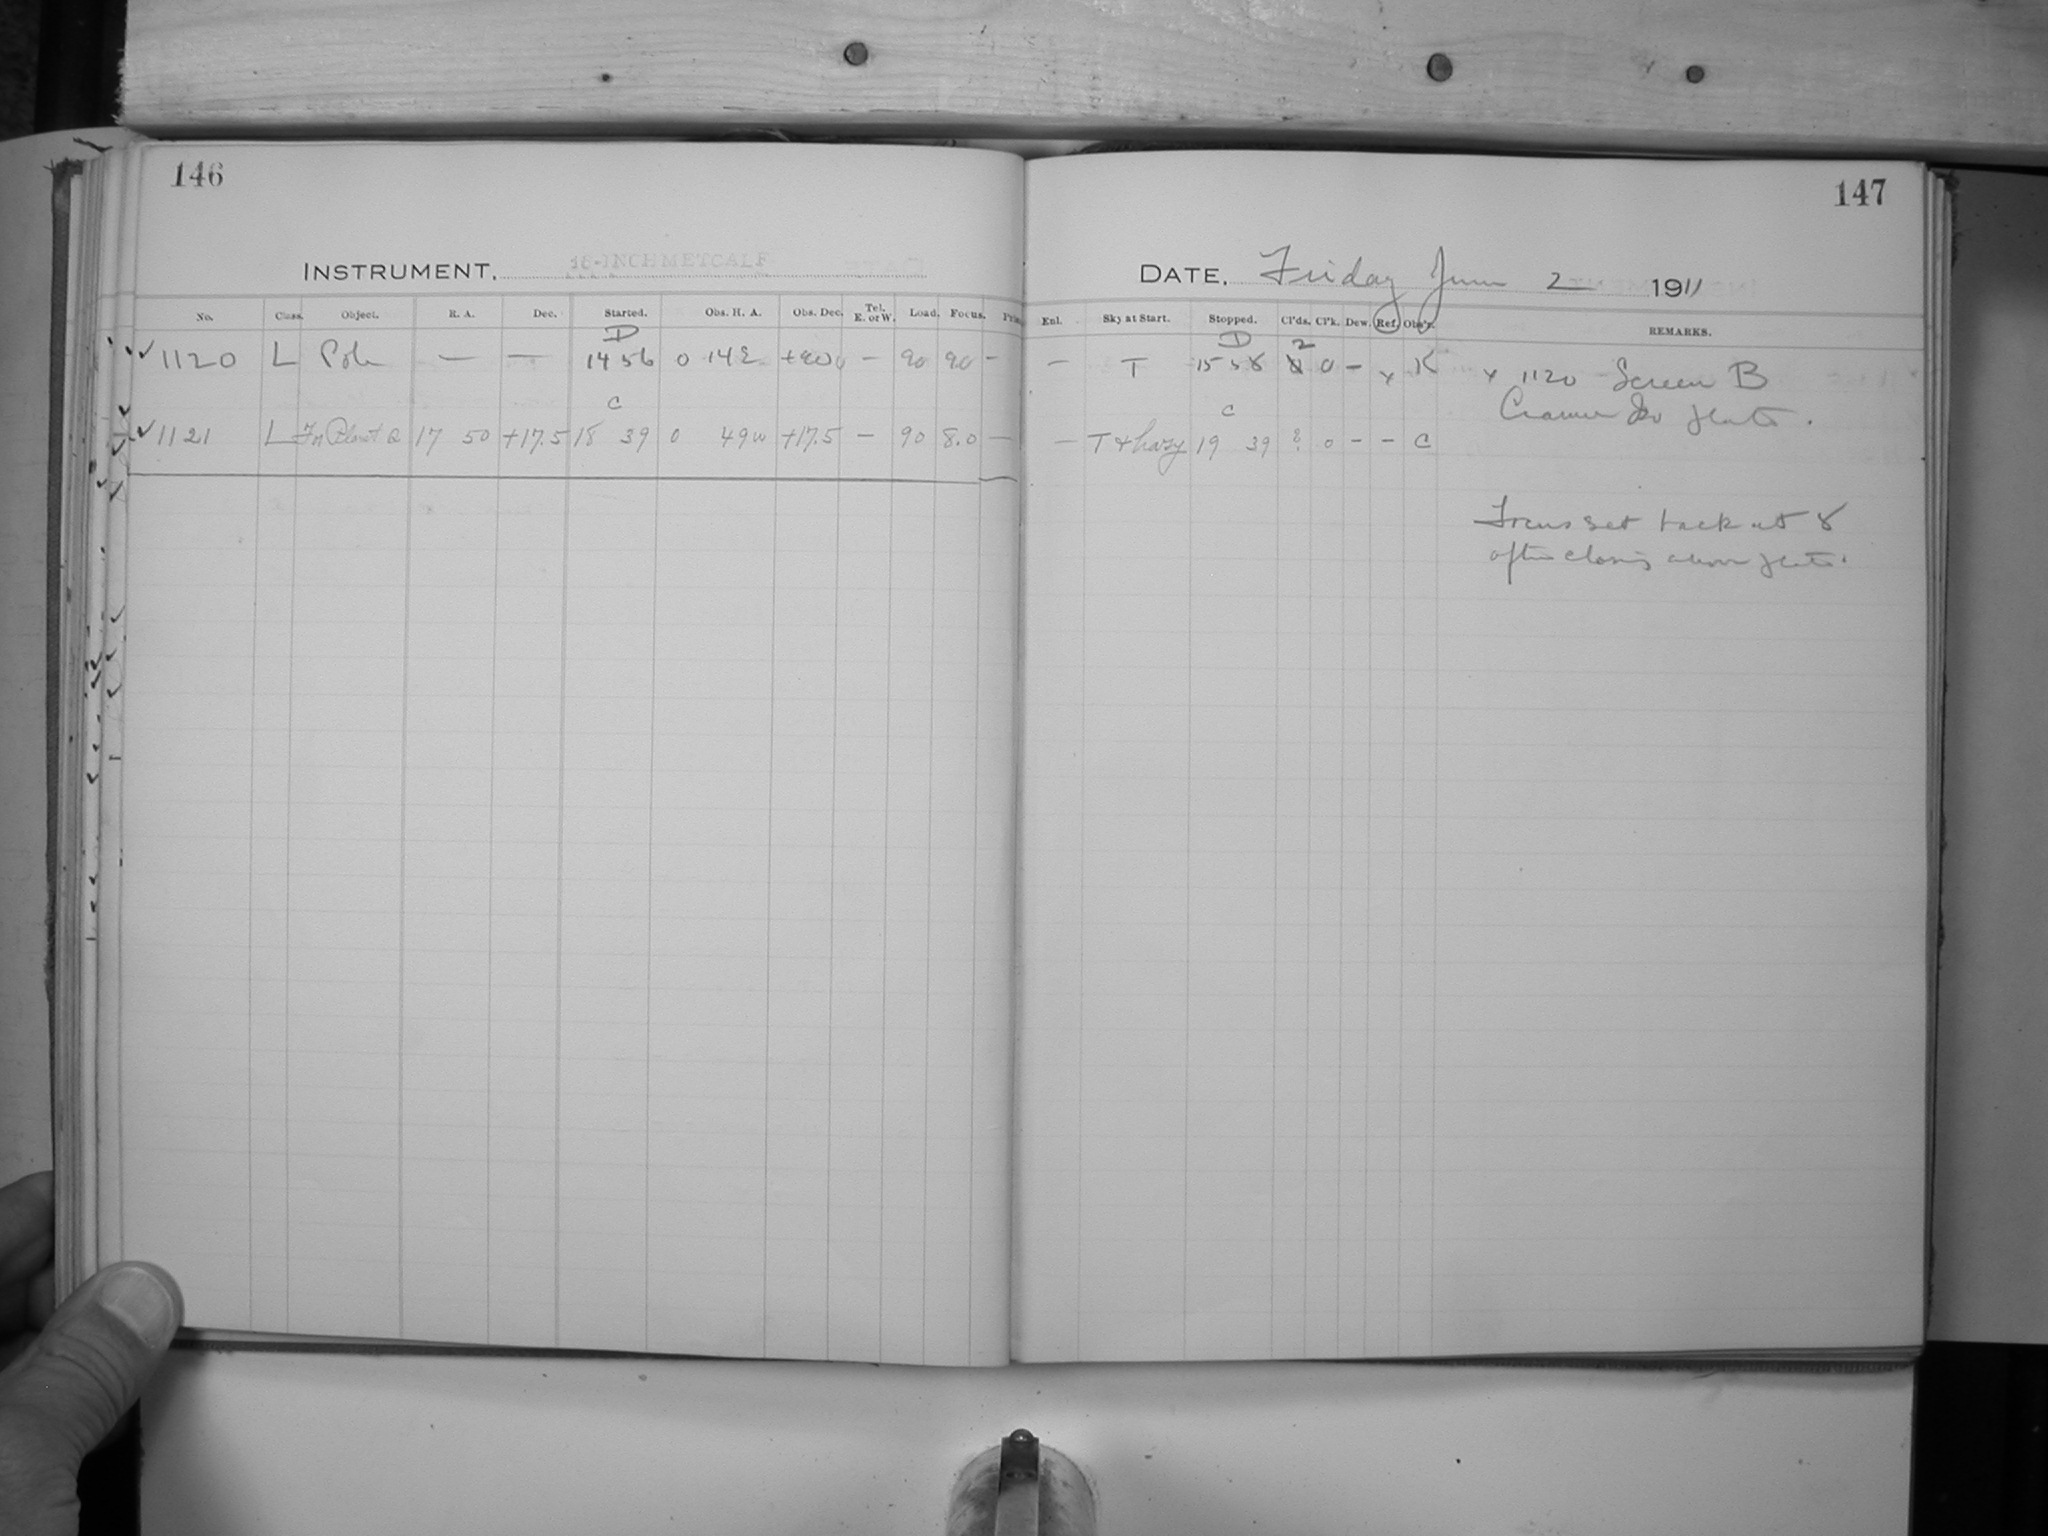 146
147
INSTRUMENT, 16-INCH METCALF
DATE, Friday June 2 1911
No. Class. Object. R. A. Dec. Started. Obs. H. A. Obs. Dec. Tel. E. or W. Load. Focus. Enl. Sky at Start. Stopped. Cl'ds. Cl'k. Dew. Ref. Obs'r. REMARKS.
D D 2
✓✓ 1120 L Pole — — 14 56 0 14 E — 90 90 - — T 15 58 0 — x K x 1120 Screen B
C C Cramer Iso plate.
✓ 1121 L 17 50 +17.5 18 39 0 49 w +17.5 — 90 8.0 — — T & hazy 19 39 0 - - C
Focus set back at 8
after closing above plate.